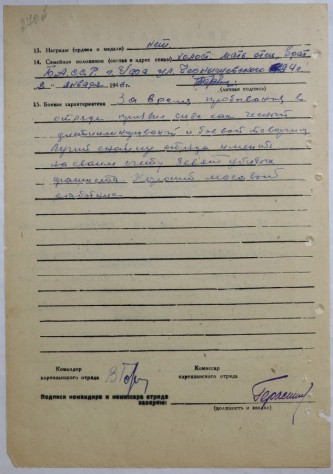 13. Награды (ордена и медали) нет.
14. Семейное положение (состав и адрес семьи) холост мать, отец, брат
БАССР г. Уфа ул. Чернышевского
" " января 194 г.
(личная подпись)
15. Боевая характеристика За время пребывания в
отряде проявил себя как честный
дисциплинированный и боевой товарищ
Лучший снайпер отряда имеет
на своем счету девять убитых
фашиста. Хороший массовый
работник.
Командир
партизанского отряда
Комиссар
партизанского отряда
Подписи командира и комиссара отряда
заверяю:
(должность и звание)